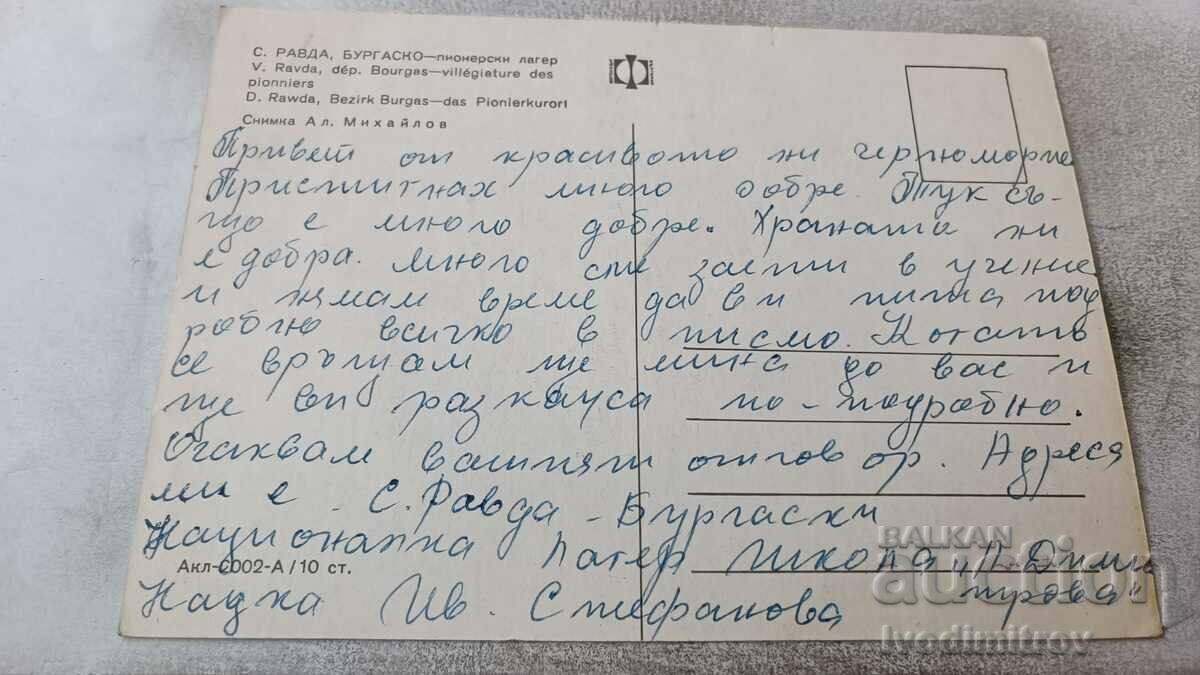 С. РАВДА, БУРГАСКО—пионерски лагер
V. Ravda, dép. Bourgas—villégiature des
pionniers
D. Rawda, Bezirk Burgas—das Pionierkurort
Снимка Ал. Михайлов
Привет от красивото ни черноморие
Пристигнах много добре. Тук съ-
що е много добре. Храната ни
е добра. Много сме заети в учение
и нямам време да ви пиша под
робно всичко в писмо. Когато
се връщам ще мина до вас и
ще ви разкажа по-подробно.
Очаквам вашият отговор. Адреся
ми е с. Равда - Бургаски
Национална лагер школа "Л. Дими
трова"
Акл-С002-А/10 ст.
Надка Ив. Стефанова
BALKAN
auction
Ivodimitrov